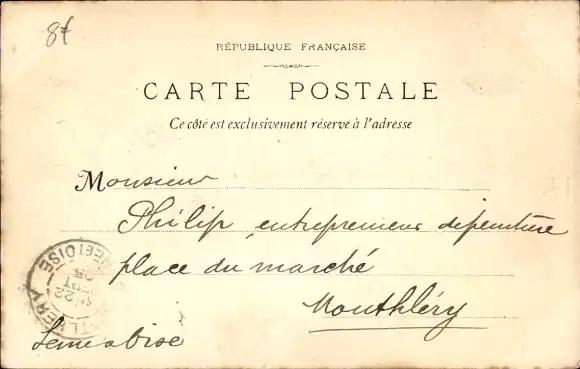 8f
RÉPUBLIQUE FRANÇAISE
CARTE POSTALE
Ce côté est exclusivement réservé à l'adresse
Monsieur
Philip entrepreneur de peinture
place du marché
Monthléry
Seine & Oise